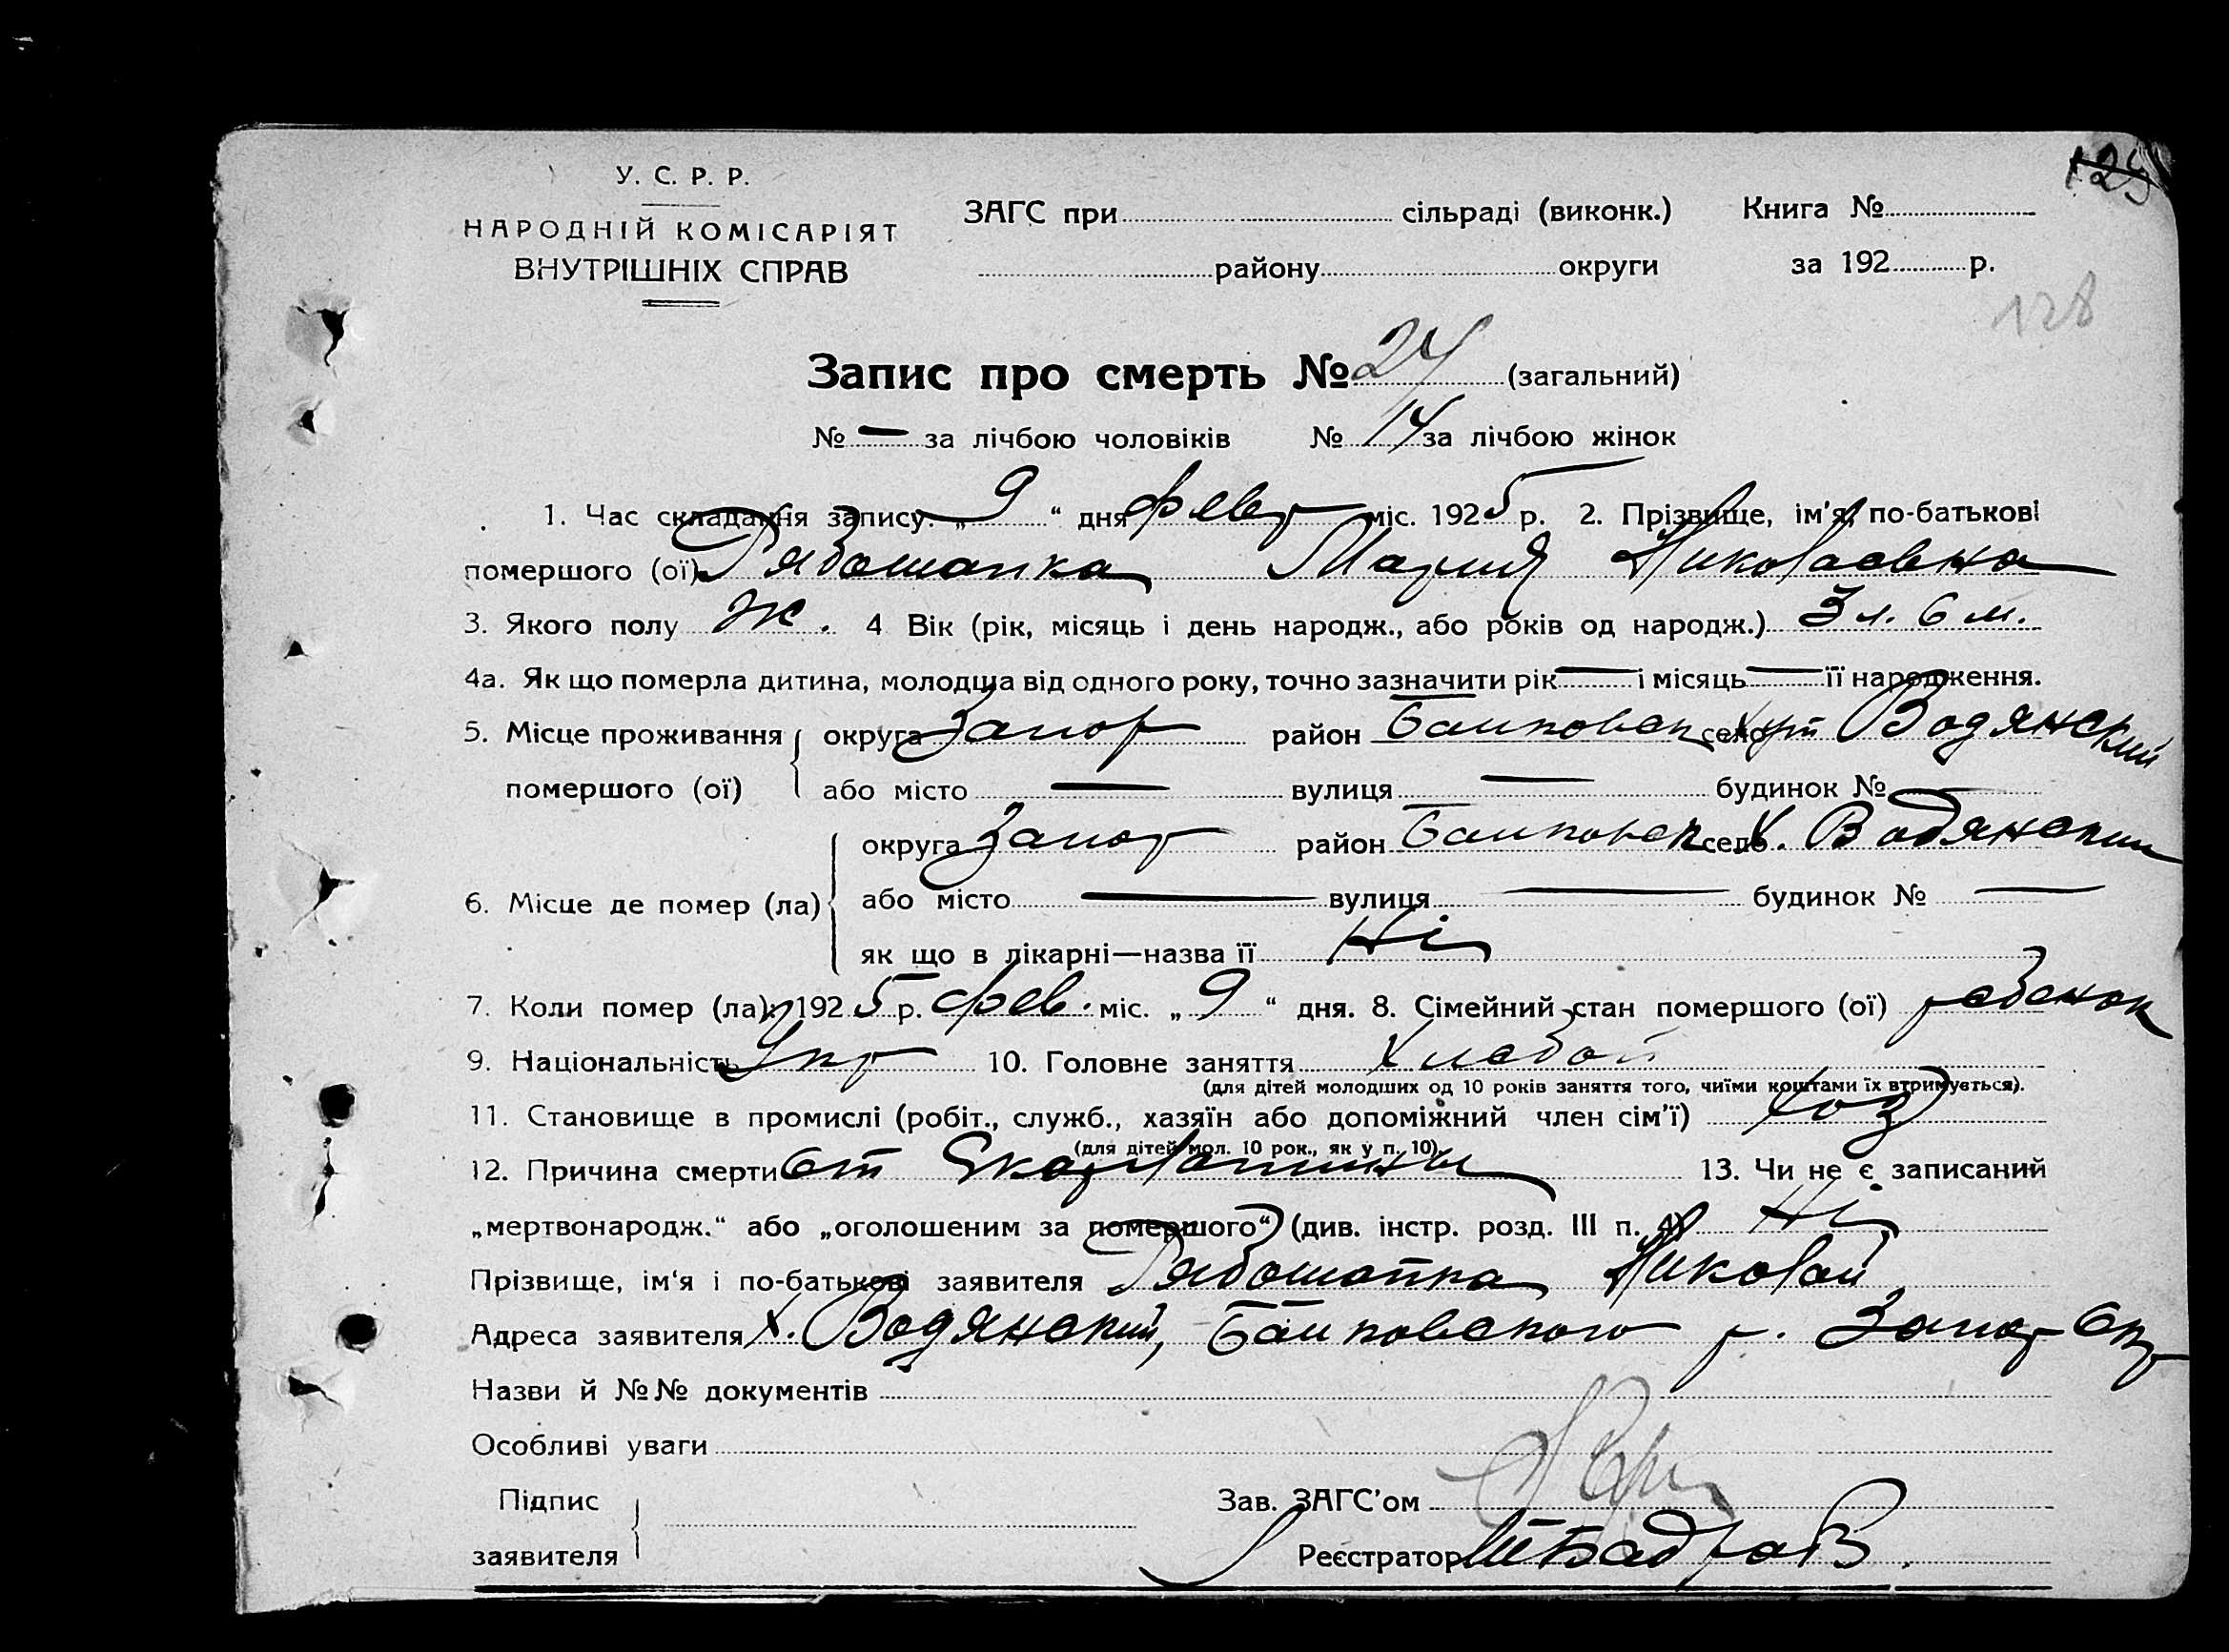 129
У. С. Р. Р.
НАРОДНІЙ КОМІСАРІЯТ
ВНУТРІШНІХ СПРАВ
ЗАГС при сільраді (виконк.) Книга №
району округи за 192 р.
128
Запис про смерть № 24 (загальний)
№ — за лічбою чоловіків № 14 за лічбою жінок
1. Час складання запису: „ 9 “ дня февр міс. 1925 р. 2. Прізвище, ім'я, по-батькові
помершого (ої) Рябошапка Мария Николаевна
3. Якого полу Ж. 4 Вік (рік, місяць і день народж., або років од народж.) 3 л. 6 м.
4а. Як що померла дитина, молодша від одного року, точно зазначити рік — і місяць — її народження.
5. Місце проживання округа Запор район Башковск село хут Водянский
помершого (ої) або місто — вулиця — будинок № —
округа Запор район Башковск село Х. Водянский
6. Місце де помер (ла) або місто — вулиця — будинок № —
як що в лікарні—назва її Ні
7. Коли помер (ла): 1925 р. фев. міс. „ 9 “ дня. 8. Сімейний стан помершого (ої) ребенок
9. Національність Укр 10. Головне заняття Хлебой
(для дітей молодших од 10 років заняття того, чиїми коштами їх втримується).
11. Становище в промислі (робіт., служб., хазяїн або допоміжний член сім'ї) Хоз
(для дітей мол. 10 рок., як у п. 10)
12. Причина смерти от Скарлатины 13. Чи не є записаний
„мертвонародж.“ або „оголошеним за помершого“ (див. інстр. розд. III п. 4) Ні
Прізвище, ім'я і по-батькові заявителя Рябошапка Николай
Адреса заявителя х. Водянский, Башковского р. Запор Окр
Назви й №№ документів
Особливі уваги
Підпис Зав. ЗАГС'ом
заявителя Реєстратор